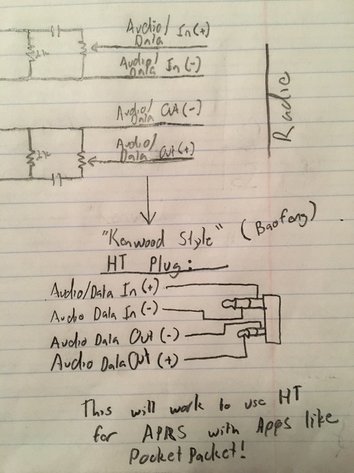 Audio/
Data In (+)
Audio/
Data In (-)
Audio/
Data Out (-)
Audio/
Data Out (+)
Radio
"Kenwood Style" (Baofeng)
HT Plug:
Audio/Data In (+)
Audio Data In (-)
Audio Data Out (-)
Audio Data Out (+)
This will work to use HT
for APRS with Apps like
PocketPacket!